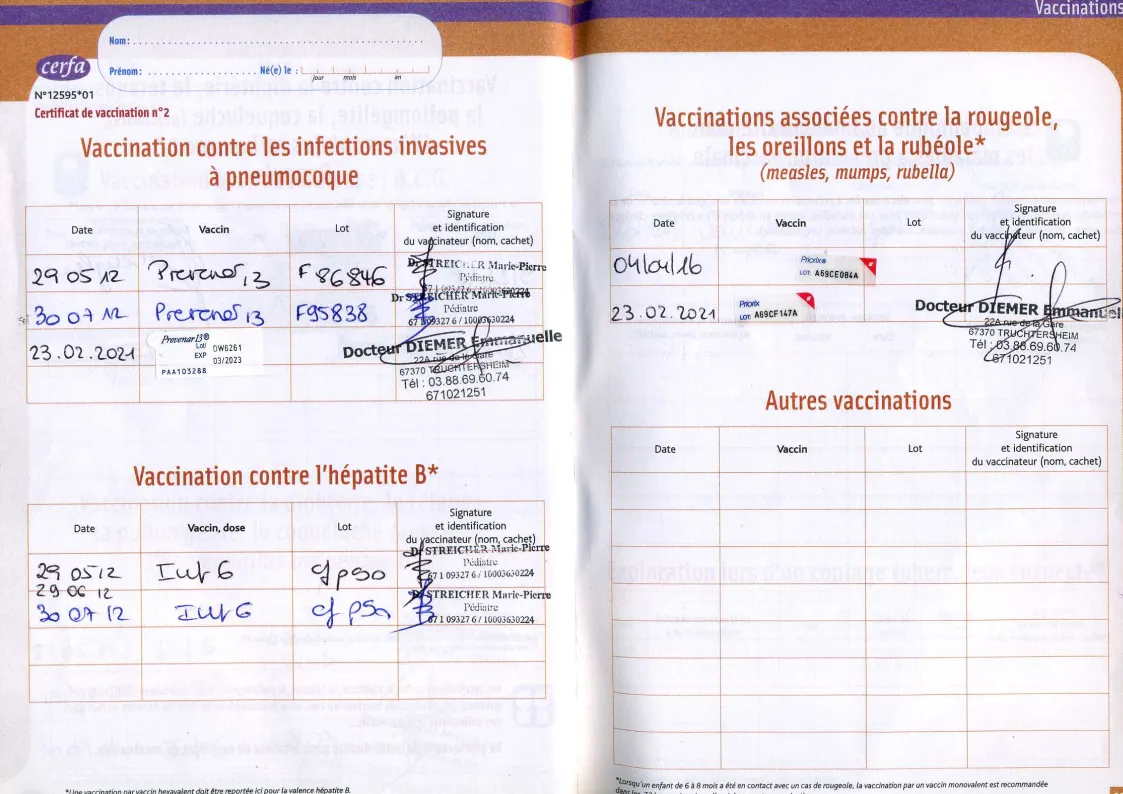 Nom :
cerfa
Prénom : Né(e) le :
jour mois an
N°12595*01
Certificat de vaccination n°2
Vaccination contre les infections invasives
à pneumocoque
Date Vaccin Lot Signature
et identification
du vaccinateur (nom, cachet)
29 05 12 Prevenar 13 F86846 Dr STREICHER Marie-Pierre
Pédiatre
67 1 09327 6 / 10003630224
30 07 12 Prevenar 13 F95838 Dr STREICHER Marie-Pierre
Pédiatre
67 1 09327 6 / 10003630224
23.02.2021 Prevenar 13®
Lot DW6261
EXP 03/2023
PAA103288
Docteur DIEMER Emmanuelle
22A rue de la Gare
67370 TRUCHTERSHEIM
Tél : 03.88.69.60.74
671021251
Vaccination contre l'hépatite B*
Date Vaccin, dose Lot Signature
et identification
du vaccinateur (nom, cachet)
29 05 12
29 06 12
Dr STREICHER Marie-Pierre
Pédiatre
67 1 09327 6 / 10003630224
30 07 12
Dr STREICHER Marie-Pierre
Pédiatre
67 1 09327 6 / 10003630224
*Une vaccination par vaccin hexavalent doit être reportée ici pour la valence hépatite B.
Vaccinations
Vaccinations associées contre la rougeole,
les oreillons et la rubéole*
(measles, mumps, rubella)
Date Vaccin Lot Signature
et identification
du vaccinateur (nom, cachet)
04/04/16 Priorix®
LOT: A69CE084A
23.02.2021 Priorix
LOT: A69CF147A
Docteur DIEMER Emmanuel
22A rue de la Gare
67370 TRUCHTERSHEIM
Tél : 03.88.69.60.74
671021251
Autres vaccinations
Date Vaccin Lot Signature
et identification
du vaccinateur (nom, cachet)
*Lorsqu'un enfant de 6 à 8 mois a été en contact avec un cas de rougeole, la vaccination par un vaccin monovalent est recommandée